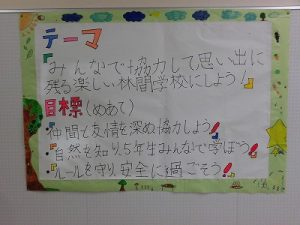 テーマ
『みんなで協力して思い出に
残る楽しい林間学校にしよう!』
目標(めあて)
・仲間と友情を深め協力しよう!
・自然を知り、5年生みんなで学ぼう!
・ルールを守り安全に過ごそう!